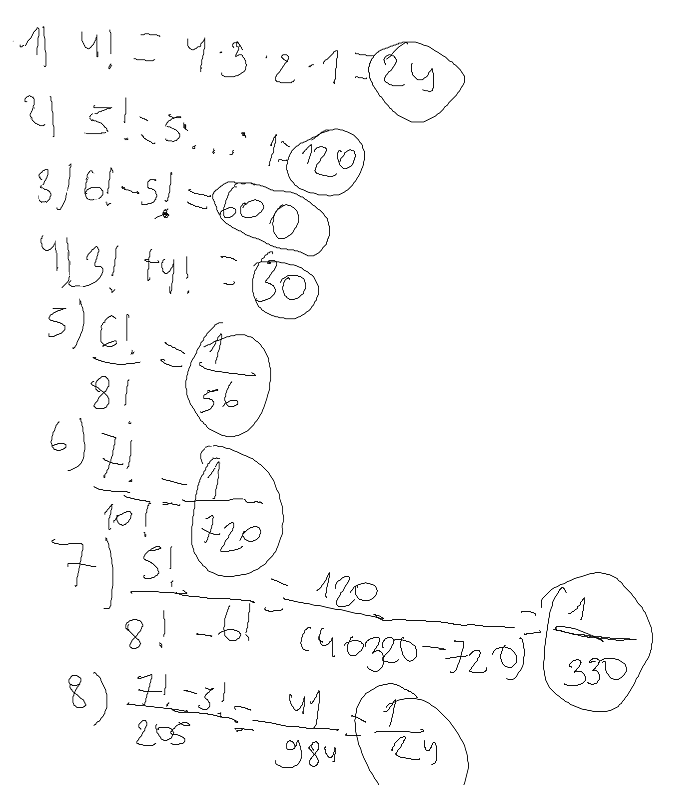 1) 4! = 4·3·2·1 = 24
2) 5! = 5·...·1 = 120
3) 6! - 5! = 600
4) 3! + 4! = 30
5) 6!/8! = 1/56
6) 7!/10! = 1/720
7) 5!/(8! - 6!) = 120/(40320 - 720) = 1/330
8) (7! - 3!)/205 = 41/984 = 1/24